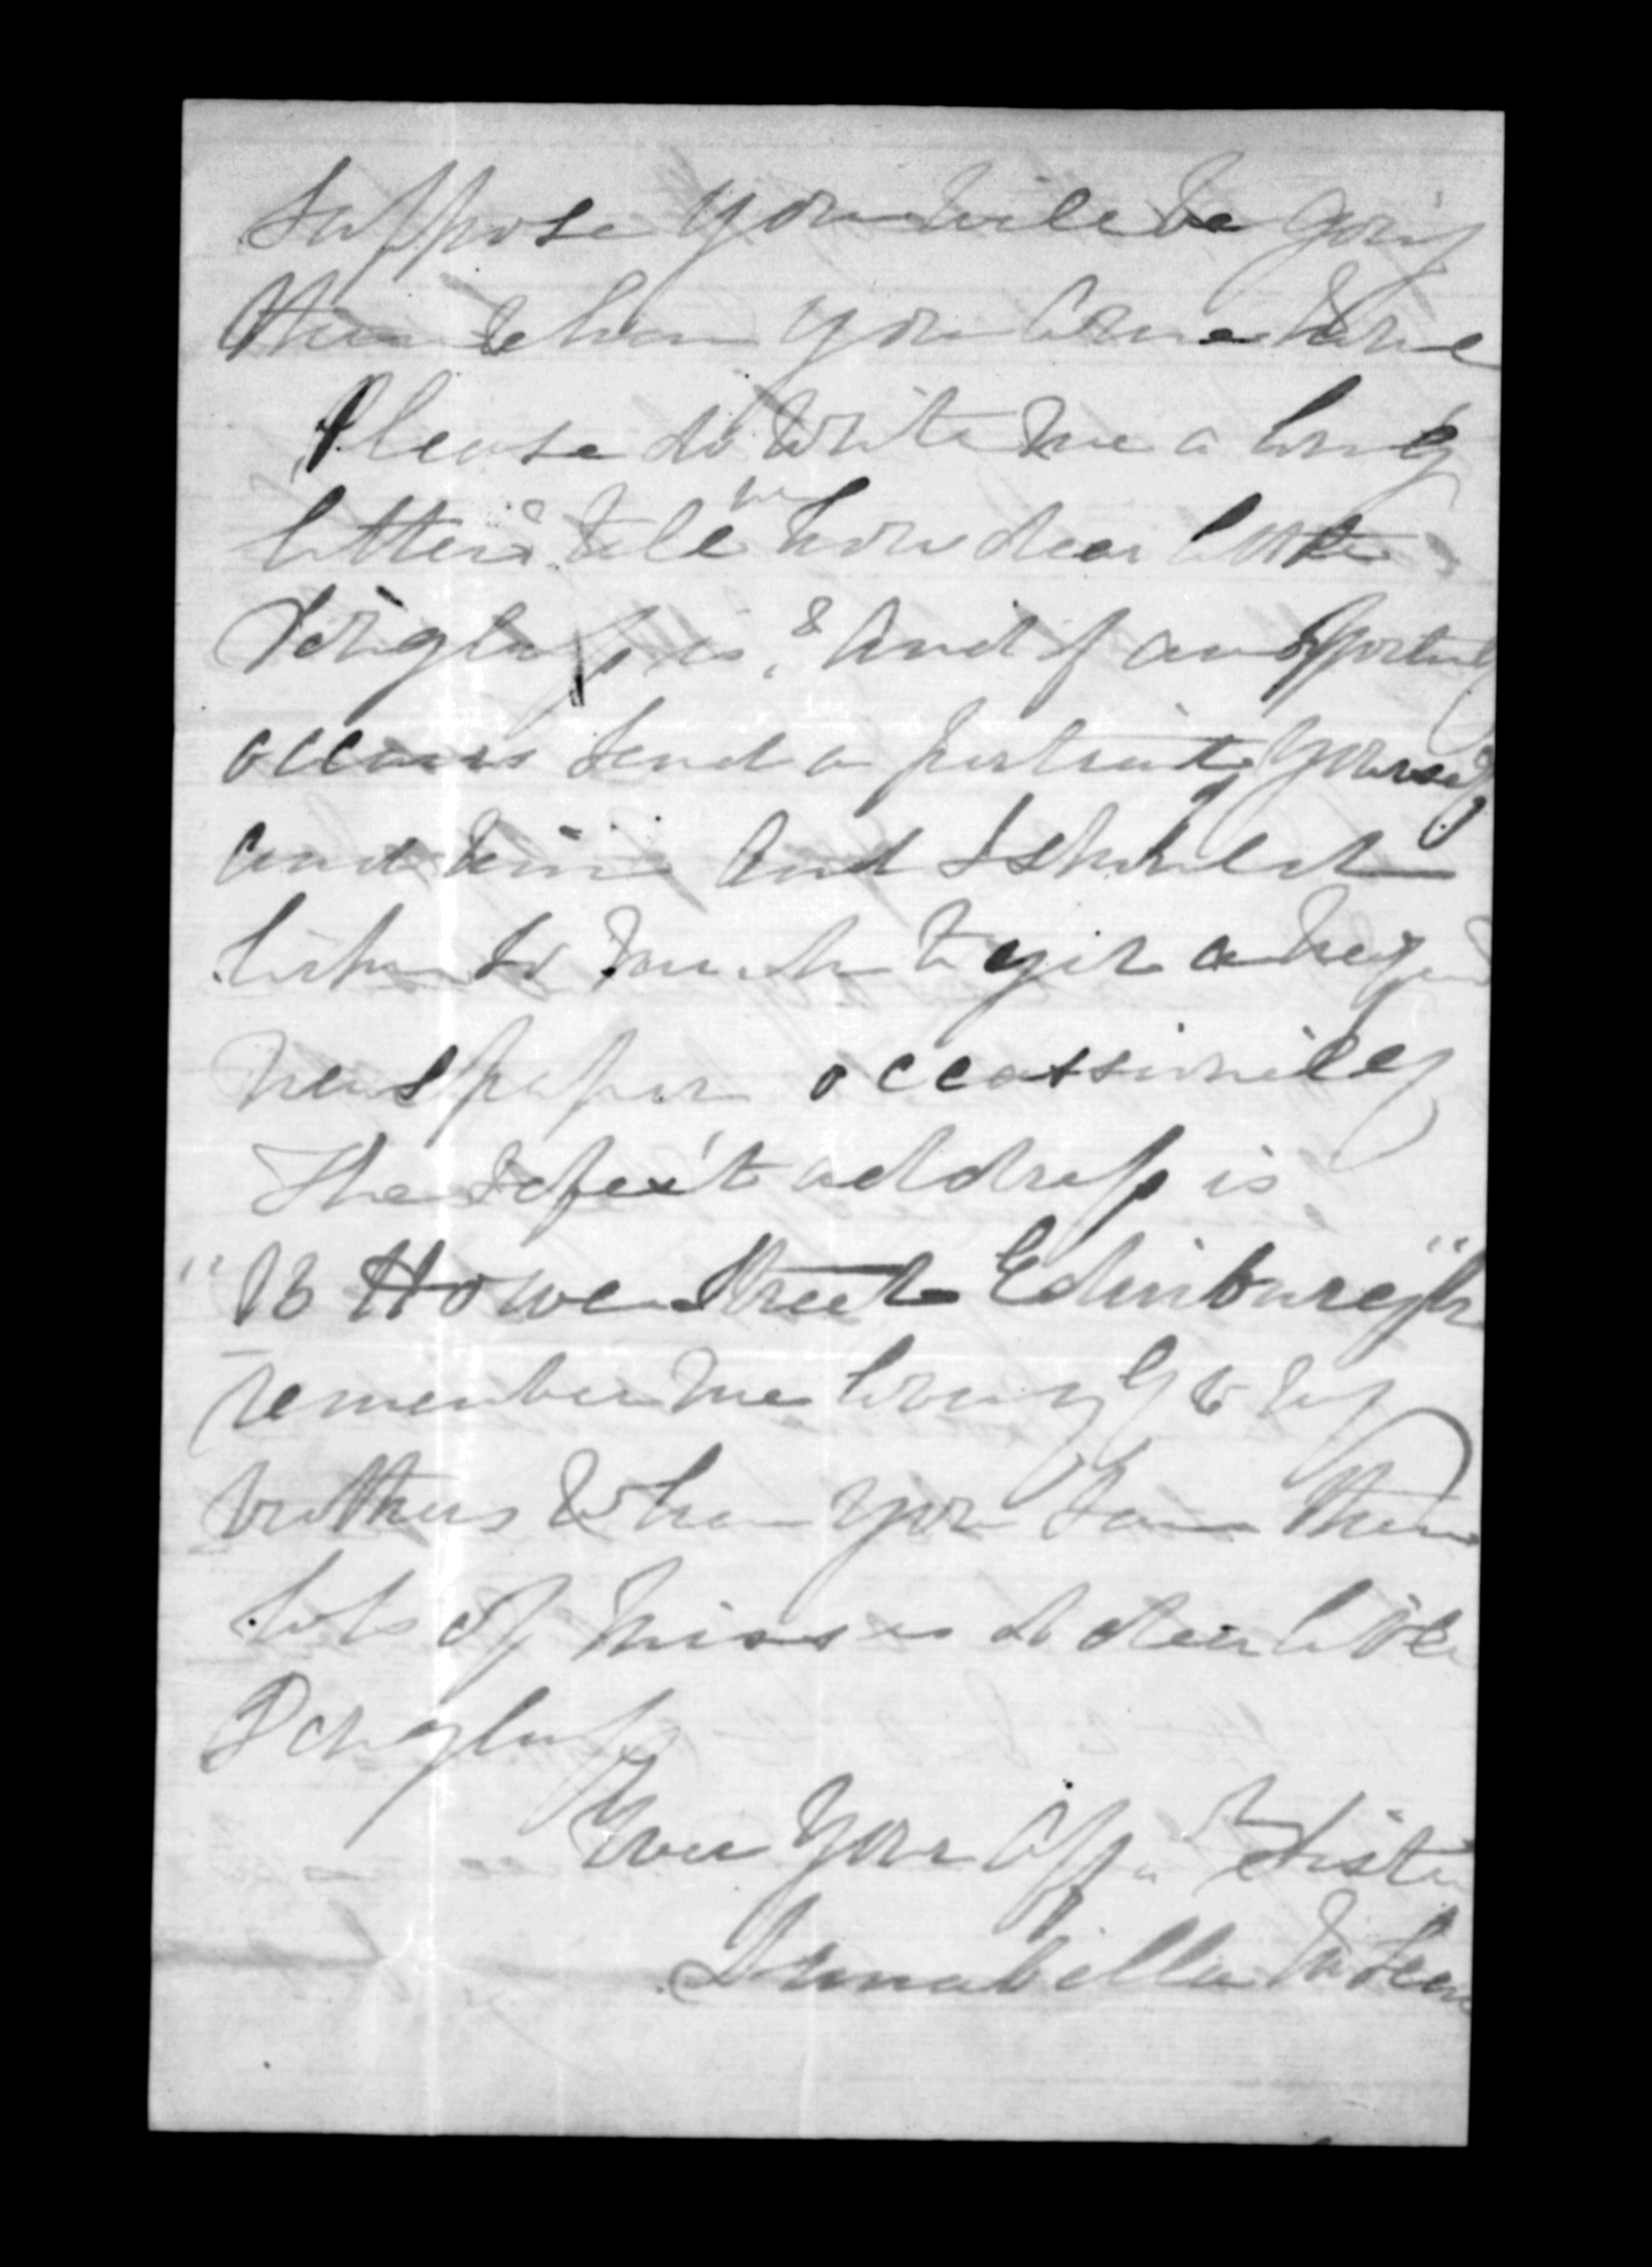 suppose you will be going
then when you come here
Please do write me a long
letter & tell me how dear little
Douglass is, & and if an opportunity
occurs send a portrait of yourself
and him and I should
like so much to get a
newspaper occassionilly
The safest address is
" 18 Howe Street Edinburgh "
remember me lovingly to my
brothers when you see them
lots of kisses to dear little
Douglass
Ever your aff. sister
Annabella McLean